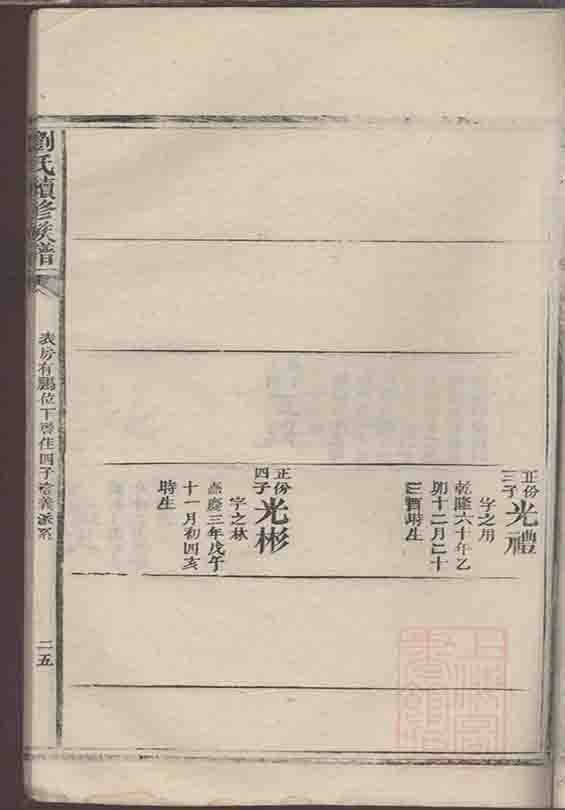 正份
三子
光禮
字之用
乾隆六十年乙
卯十二月二十
三酉時生
正份
四子
光彬
字之林
嘉慶三年戊午
十一月初四亥
時生
劉氏續修族譜
表房有鵬位下 住四子 義派系
二五